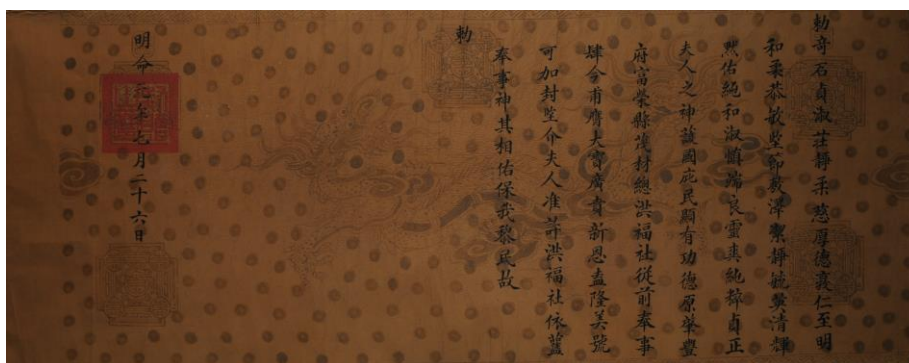 勅奇石貞淑莊靜柔慈厚德襄仁至明
和柔恭敏堅節敷澤絜靜毓慶清輝
熙佑純和淑慎端良靈真純粹貞正
夫人之神護國庇民顯有功德原肇豐
府富榮縣茂材總洪福社從前奉事
肆今甫膺大寶廣賁新恩益隆美號
可加封堅介夫人準許洪福社依舊
奉事神其相佑保我黎民故
勅
明命 年七月二十六日